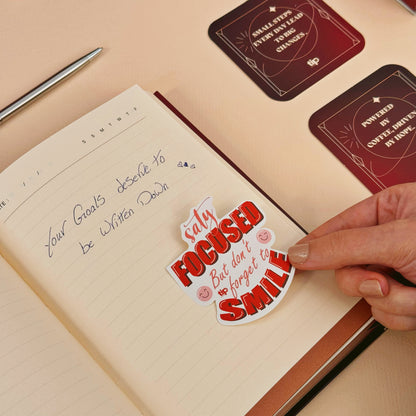 SMALL STEPS
EVERY DAY LEAD
TO BIG
CHANGES.
POWERED
BY
COFFEE, DRIVEN
BY HOPE.
/ /
S S M T W T F
Your Goals deserve to
be written Down
saty
FOCUSED
But don't
forget to
SMILE